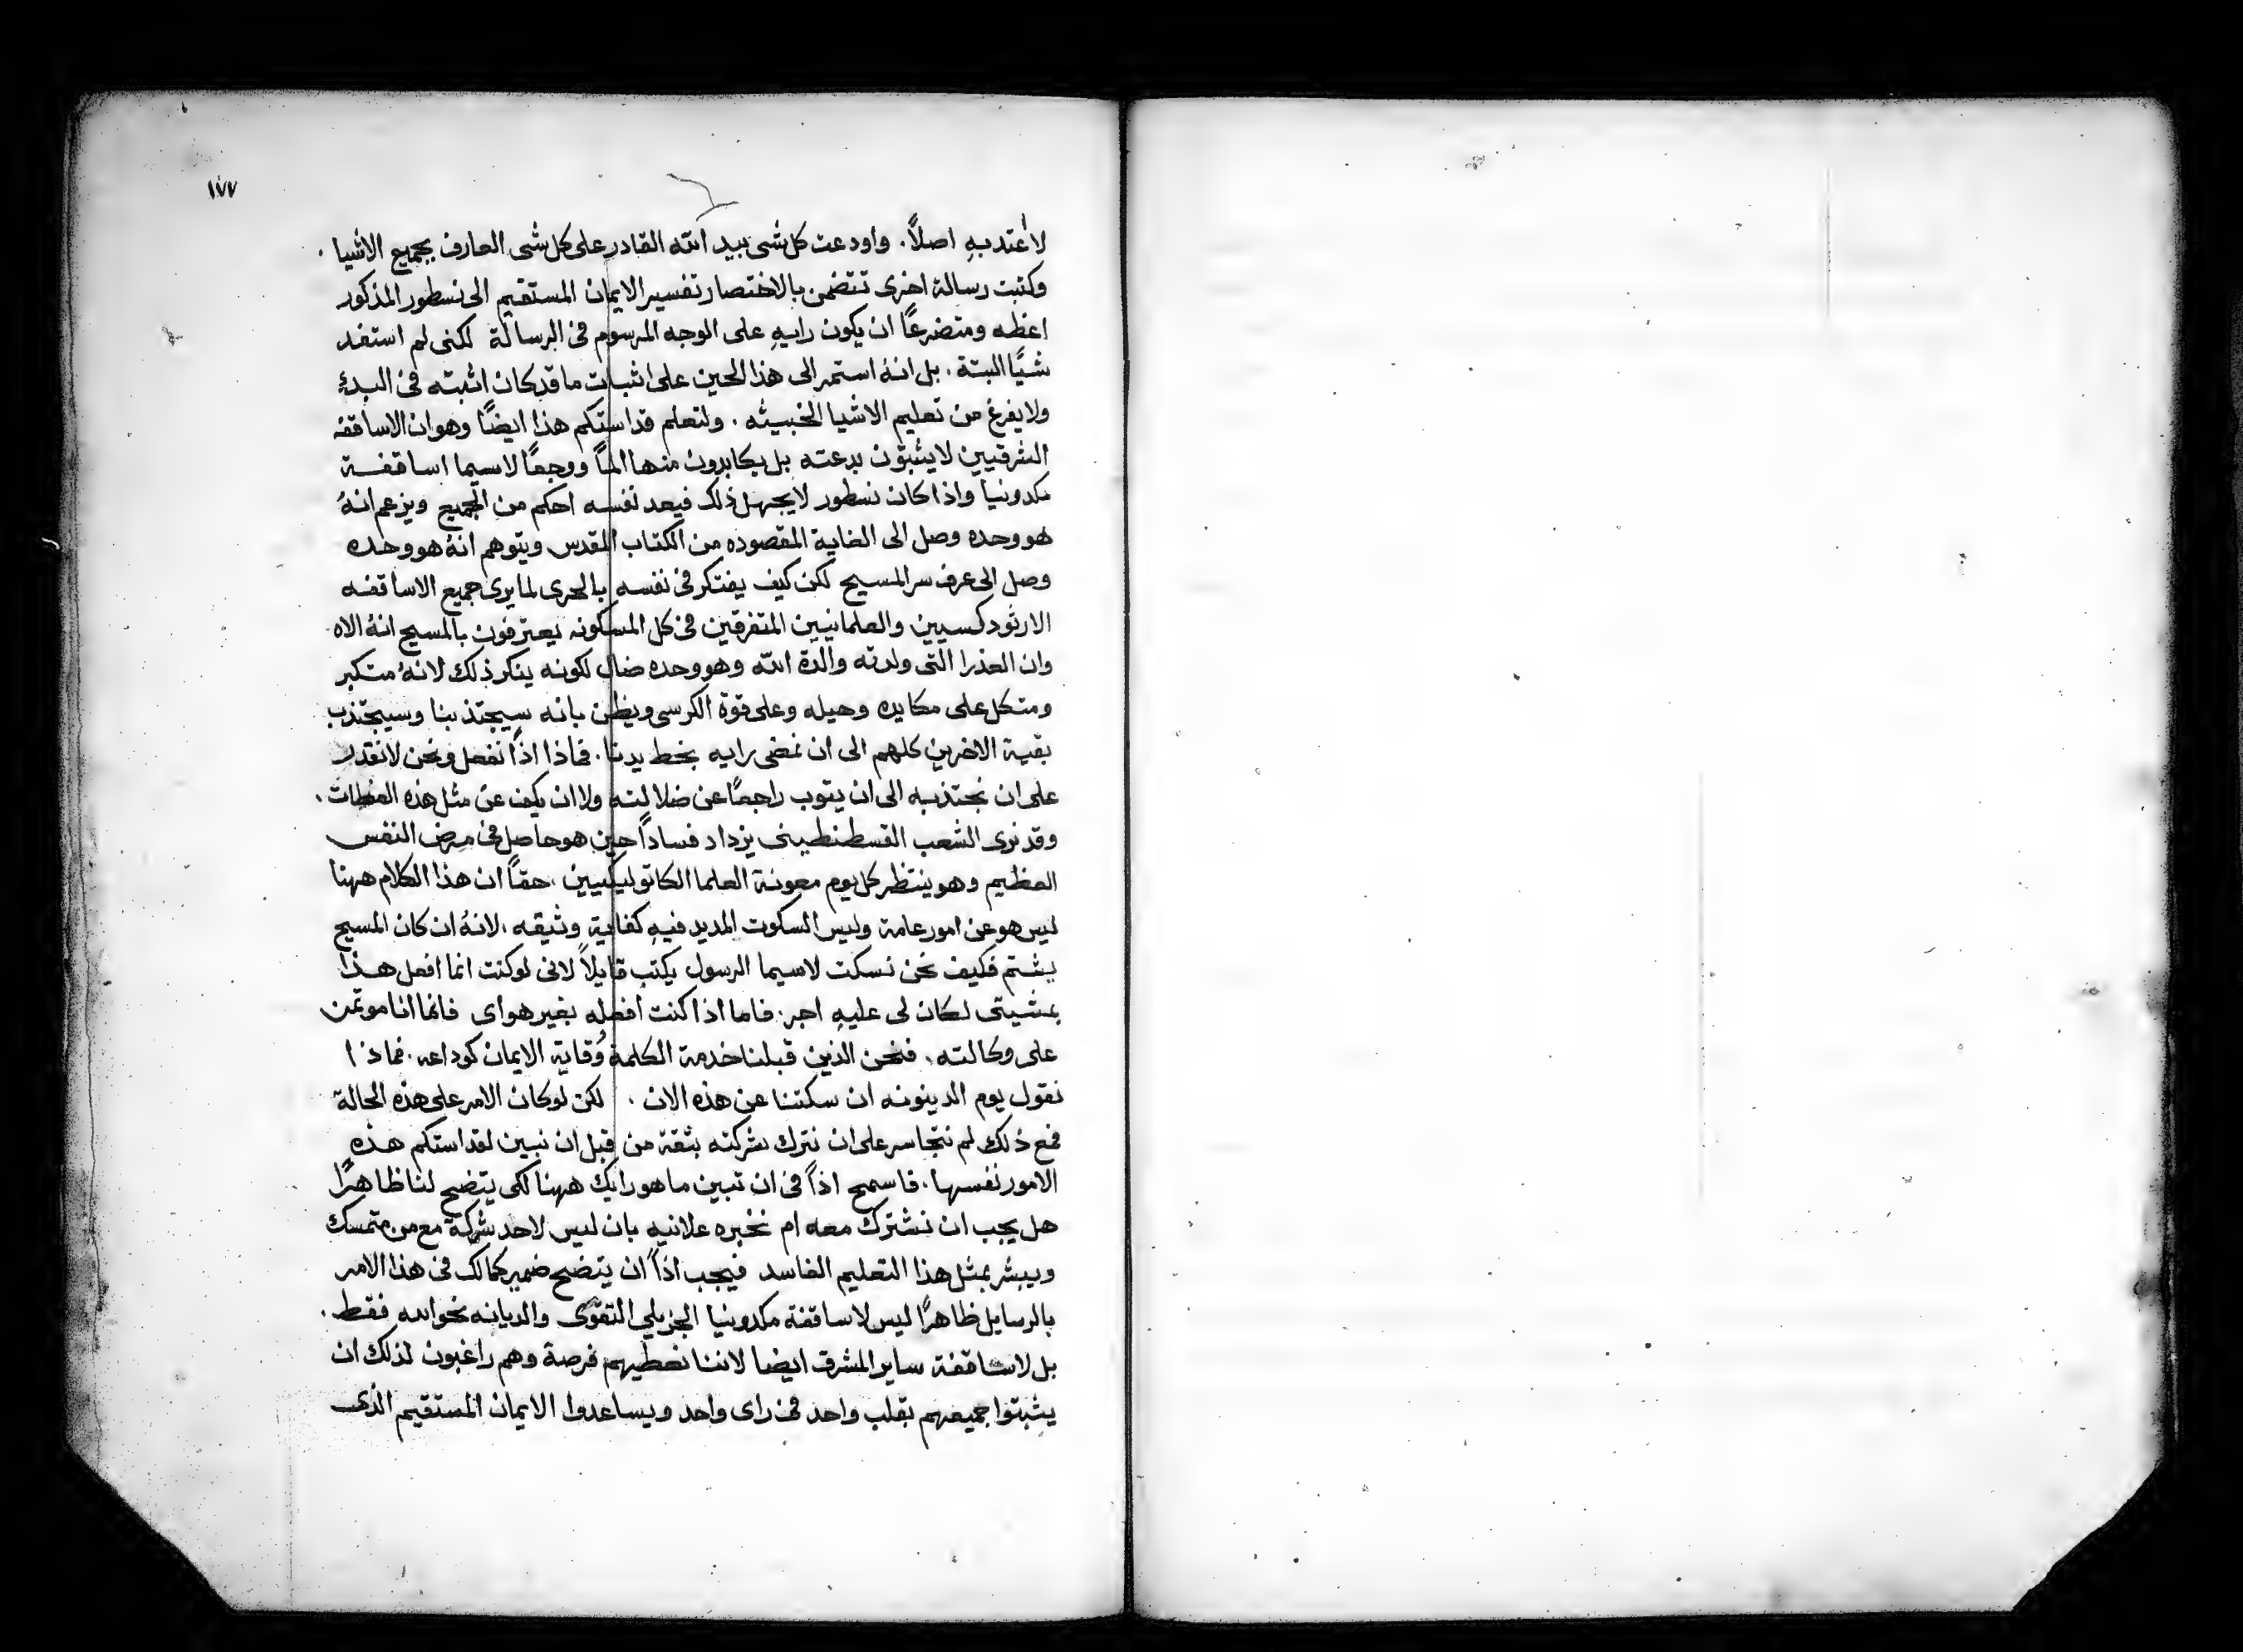 ١٧٧
لا أعتد بهِ اصلاً. واودعت كل شى بيد الله القادر على كل شى العارف بجميع الاشيا.
وكتبت رسالة اخرى تتضمن بالاختصار تفسير الايمان المستقيم الى نسطور المذكور
اعظه ومتضرعًا ان يكون رايهِ على الوجه المرسوم فى الرسالة لكنى لم استفد
شيًّا البتة. بل انهُ استمر الى هذا الحين على اثبات ما قد كان اثبته فى البدءِ
ولا يفرغ من تعليم الاشيا الخبيثه. ولتعلم قداستكم هذا ايضًا وهو ان الاساقفه
الشرقيين لا يثبتون بدعته بل يكابدون منها المًا ووجعًا لاسيما اساقفة
مكدونيا واذا كان نسطور لا يجهل ذلك فيعد نفسه احكم من الجميع ويزعم انهُ
هو وحده وصل الى الغاية المقصوده من الكتاب المقدس ويتوهم انهُ هو وحده
وصل الى عرف سر المسيح لكن كيف يفتكر فى نفسه بالحرى لما يرى جميع الاساقفه
الارثودكسيين والعلمانيين المتفرقين فى كل المسكونه يعترفون بالمسيح انهُ الاه
وان العذرا التى ولدته والدة الله وهو وحده ضال لكونه ينكر ذلك لانهُ متكبر
ومتكل على مكايده وحيله وعلى قوة الكرسى ويظن بانه سيجتذبنا وسيجتذب
بقية الاخرين كلهم الى ان نمضى رايه بخط يدنا. فماذا اذًا نفعل ونحن لا نقدر
على ان نجتذبه الى ان يتوب راجعًا عن ضلالته ولا ان يكف عن مثل هذه العظات.
وقد نرى الشعب القسطنطينى يزداد فسادًا حين هو حاصل فى مرض النفس
العظيم وهو ينتظر كل يوم معونة العلما الكاتوليكيين. حقًا ان هذا الكلام ههنا
ليس هو عن امور عامة وليس السكوت المديد فيهِ كفاية وثيقه. لانهُ ان كان المسيح
يشتم فكيف نحن نسكت لاسيما الرسول يكتب قايلاً لانى لو كنت انما افعل هذا
بمشيتى لكان لى عليهِ اجر. فاما اذا كنت افعله بغير هواى فانما انا موتمن
على وكالته. فنحن الذين قبلنا خدمة الكلمة وُقاية الايمان كوداعه. فماذا
نقول يوم الدينونه ان سكتنا عن هذه الان. لكن لو كان الامر على هذه الحالة
فمع ذلك لم نتجاسر على ان نترك شركته بثقة من قبل ان نبين لقداستكم هذه
الامور نفسها. فاسمح اذًا فى ان تبين ما هو رايك ههنا لكى يتضح لنا ظاهرًا
هل يجب ان نشترك معه ام نخبره علانيه بان ليس لاحد شركة مع من متمسك
ويبشر بمثل هذا التعليم الفاسد فيجب اذًا ان يتضح ضمير كمالك فى هذا الامر
بالرسايل ظاهرًا ليس لاساقفة مكدونيا الجزيلي التقوى والديانه نحو الله فقط.
بل لاساقفة ساير المشرق ايضا لاننا نعطيهم فرصة وهم راغبون لذلك ان
يثبتوا جميعهم بقلب واحد فى راى واحد ويساعدوا الايمان المستقيم الذى